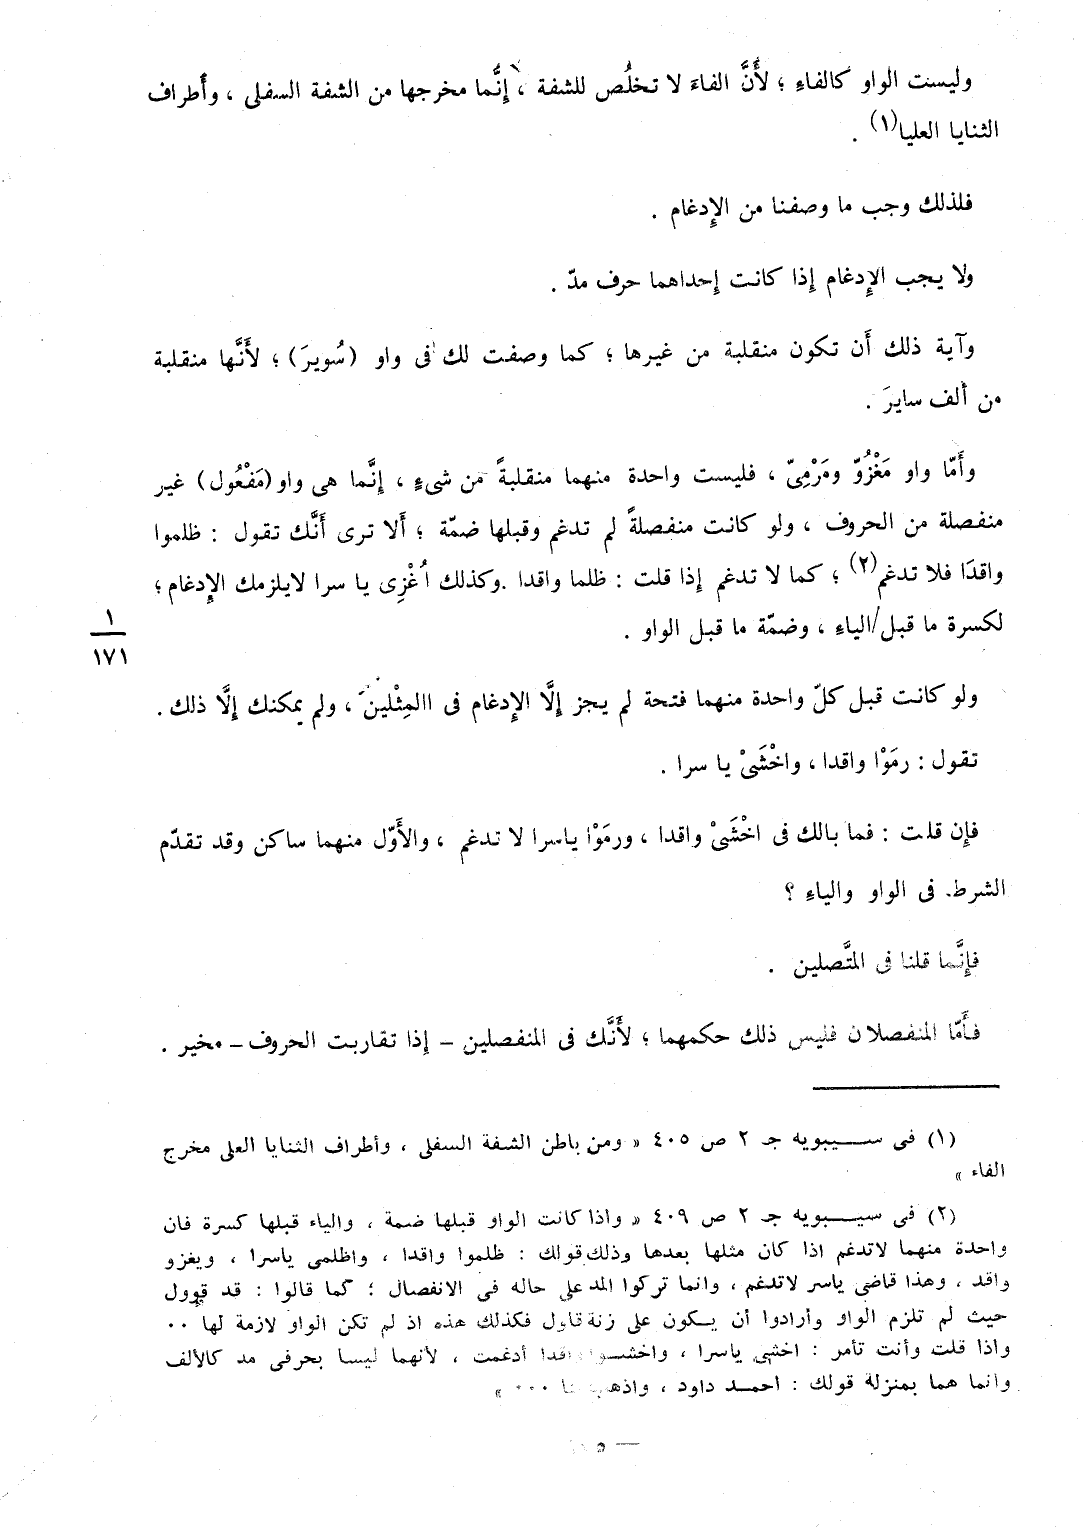 وليست الواو كالفاءِ ؛ لأَنَّ الفاءَ لا تخلُص للشفة ، إنَّما مخرجها من الشفة السفلى ، وأَطراف
الثنايا العليا(١) .
فلذلك وجب ما وصفنا من الإِدغام .
ولا يجب الإِدغام إذا كانت إحداهما حرف مدّ .
وآية ذلك أَن تكون منقلبة من غيرها ؛ كما وصفت لك فى واو (سُويرَ) ؛ لأَنَّها منقلبة
من أَلف سايرَ .
وأَمّا واو مَغْزُوّ ومَرْمِىّ ، فليست واحدة منهما منقلبةً من شىءٍ ، إنَّما هى واو (مَفْعُول) غير
منفصلة من الحروف ، ولو كانت منفصلةً لم تدغم وقبلها ضمّة ؛ أَلا ترى أَنَّك تقول : ظلموا
واقدَا فلا تدغم(٢) ؛ كما لا تدغم إذا قلت : ظلما واقدا . وكذلك اُغْزِى يا سرا لايلزمك الإِدغام ؛
لكسرة ما قبل/الياءِ ، وضمّة ما قبل الواو .
١
١٧١
ولو كانت قبل كلّ واحدة منهما فتحة لم يجز إلَّا الإِدغام فى االمِثْلين ، ولم يمكنك إلَّا ذلك .
تقول : رمَوْا واقدا ، واخْشَىْ يا سرا .
فإن قلت : فما بالك فى اخْشَىْ واقدا ، ورمَوْا ياسرا لا تدغم ، والأَوّل منهما ساكن وقد تقدّم
الشرط فى الواو والياءِ ؟
فإنَّما قلنا فى المتَّصلين .
فأَمّا المنفصلان فليس ذلك حكمهما ؛ لأَنَّك فى المنفصلين – إذا تقاربت الحروف – مخير .
(١) فى سيبويه جـ ٢ ص ٤٠٥ « ومن باطن الشفة السفلى ، وأطراف الثنايا العلى مخرج
الفاء »
(٢) فى سيبويه جـ ٢ ص ٤٠٩ « واذا كانت الواو قبلها ضمة ، والياء قبلها كسرة فان
واحدة منهما لاتدغم اذا كان مثلها بعدها وذلك قولك : ظلموا واقدا ، واظلمى ياسرا ، ويغزو
واقد ، وهذا قاضى ياسر لاتدغم ، وانما تركوا المد على حاله فى الانفصال ؛ كما قالوا : قد قوول
حيث لم تلزم الواو وأرادوا أن يكون على زنة قاول فكذلك هذه اذ لم تكن الواو لازمة لها ..
واذا قلت وأنت تأمر : اخشى ياسرا ، واخشوا واقدا أدغمت ، لأنهما ليسا بحرفى مد كالألف
وانما هما بمنزلة قولك : احمد داود ، واذهب بنا ... »